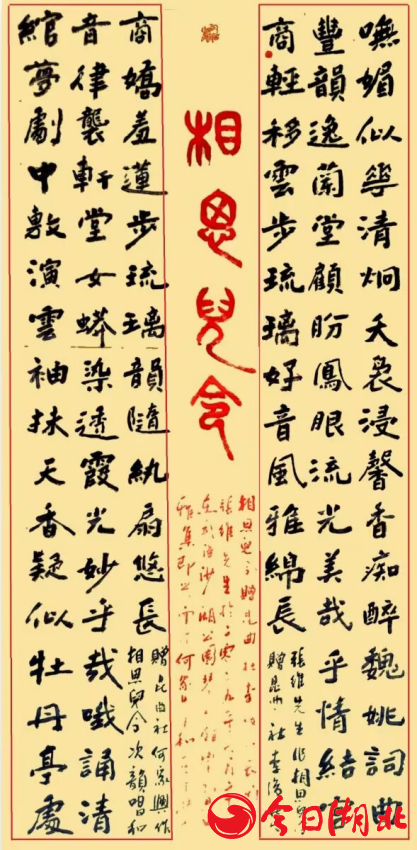 嘸媚似華清炯夭裊浸馨香痴醉魏姚詞曲
豐韻逸蘭堂顧盼鳳眼流光美哉乎情結唱
商輕移雲步琉璃好音風雅綿長
張維先生作相思
贈昆曲社李
相思兒令
相思兒令贈昆曲社李
張維先生於
雅集即
商嬌羞蓮步琉璃韻隨紈扇悠長
贈昆曲社何家興作
相思兒令次韻唱和
音律襲軒堂女蟒染透霞光妙乎哉誦清
綰夢劇中敷演雲袖抹天香疑似牡丹亭處
今日湖北